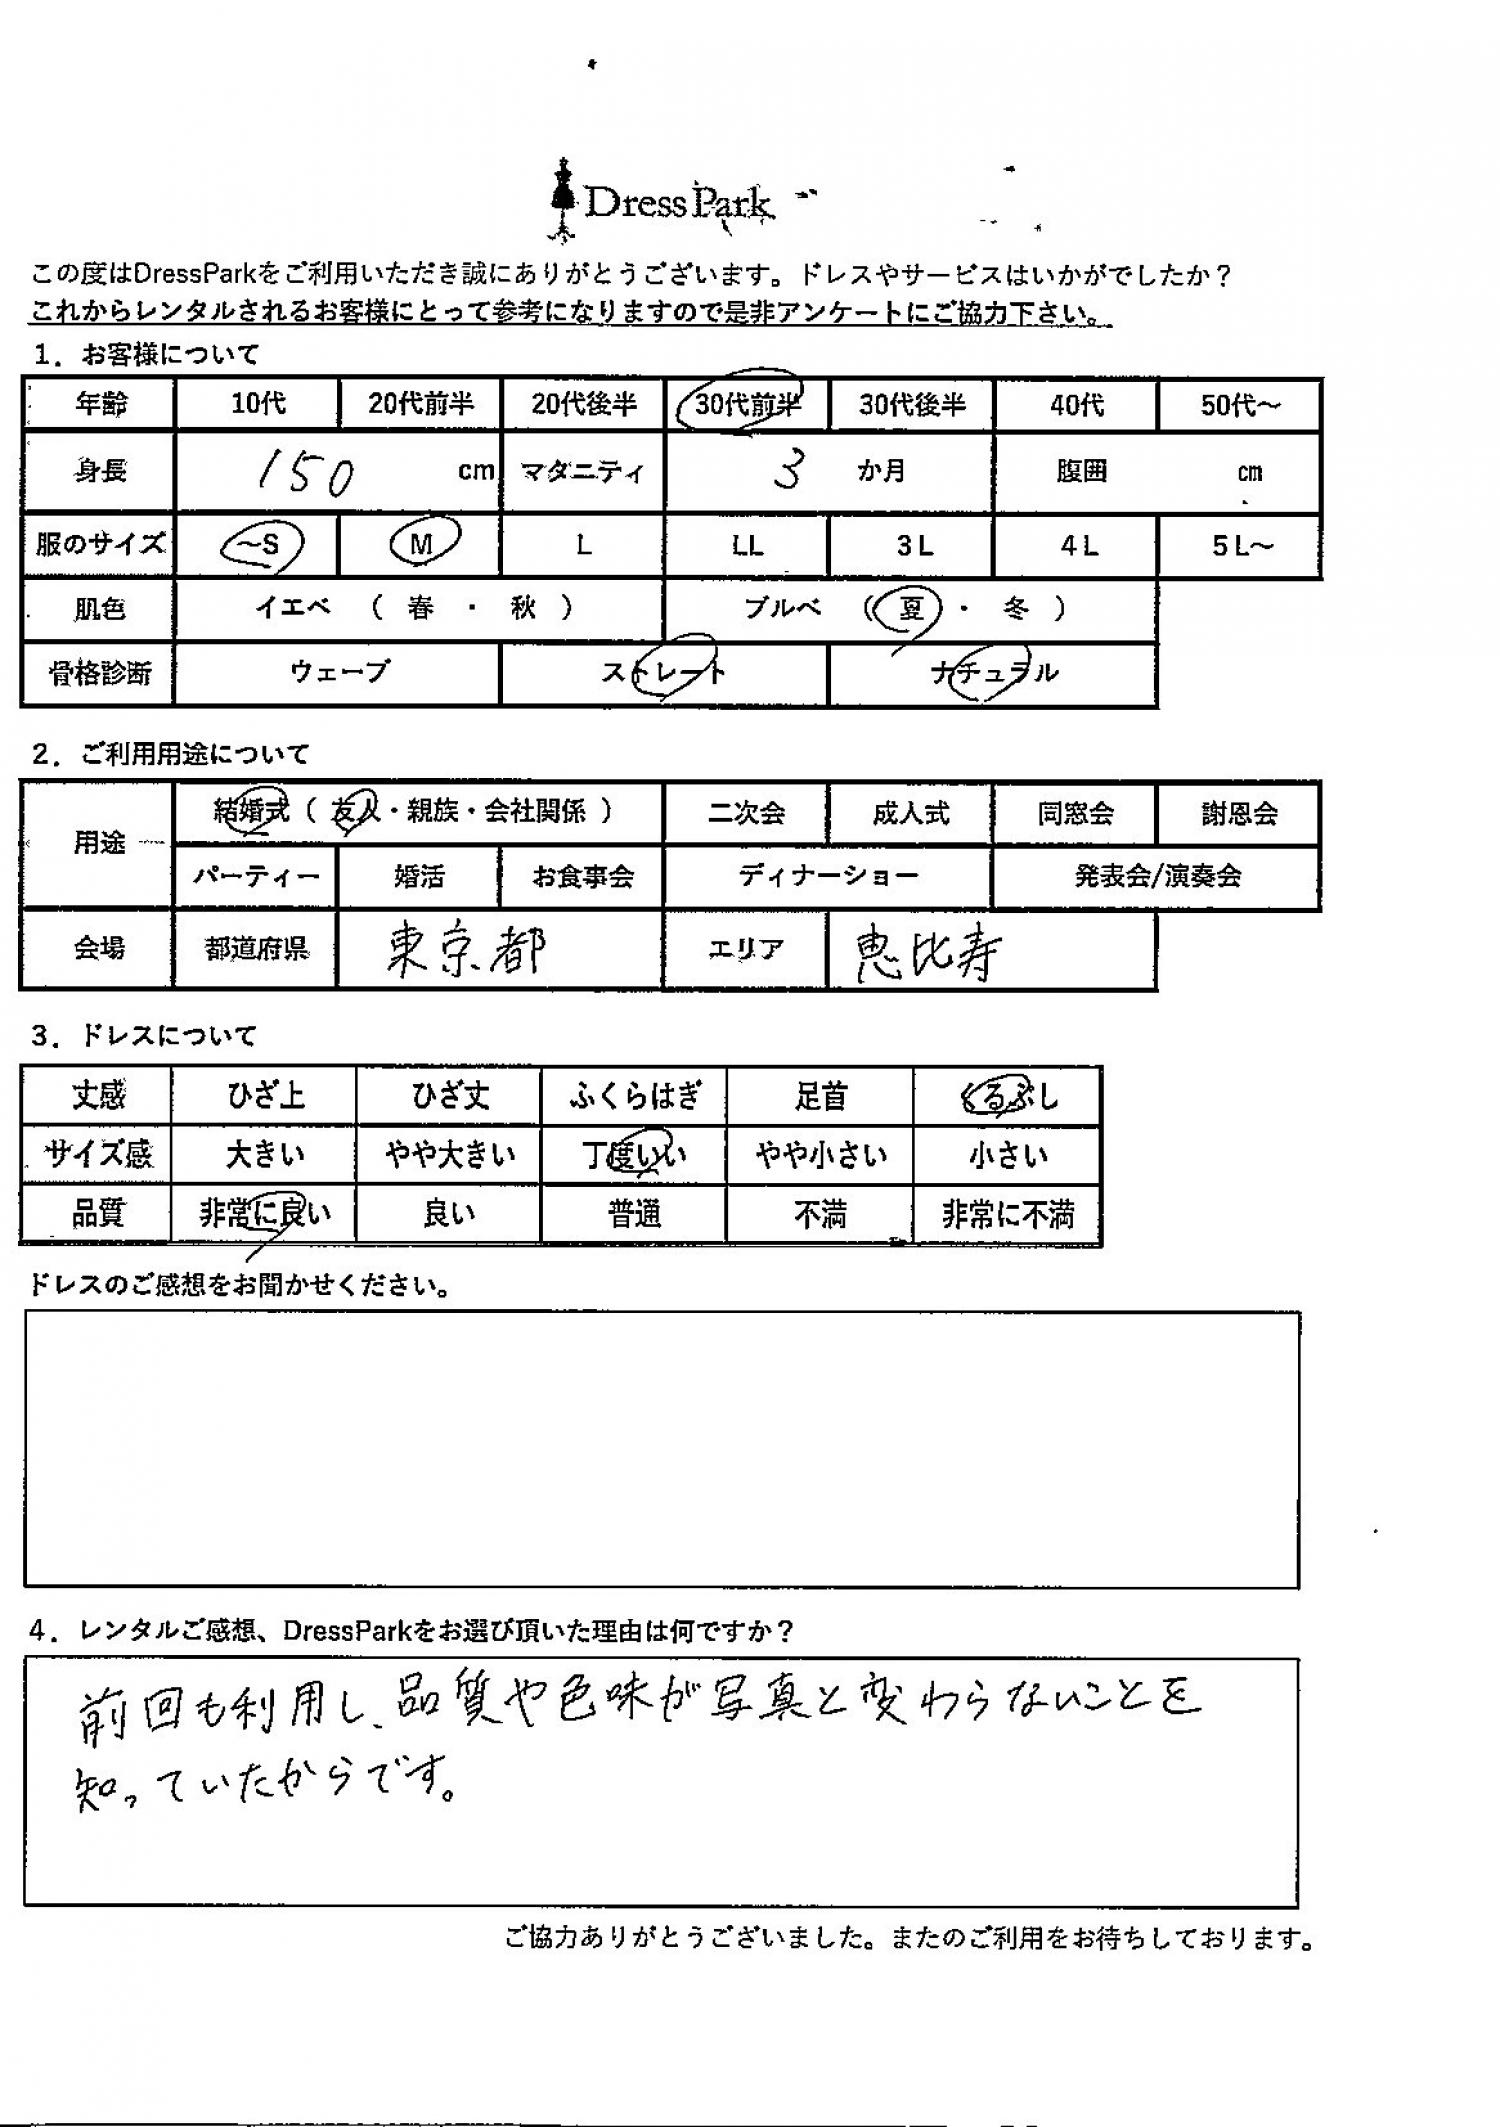 DressPark
この度はDressParkをご利用いただき誠にありがとうございます。ドレスやサービスはいかがでしたか？
これからレンタルされるお客様にとって参考になりますので是非アンケートにご協力下さい。
1．お客様について
年齢 10代 20代前半 20代後半 30代前半 30代後半 40代 50代～
身長 150 cm マタニティ 3 か月 腹囲 cm
服のサイズ ～S M L LL 3L 4L 5L～
肌色 イエベ （ 春 ・ 秋 ） ブルベ （ 夏 ・ 冬 ）
骨格診断 ウェーブ ストレート ナチュラル
2．ご利用用途について
用途 結婚式（ 友人・親族・会社関係 ） 二次会 成人式 同窓会 謝恩会
パーティー 婚活 お食事会 ディナーショー 発表会/演奏会
会場 都道府県 東京都 エリア 恵比寿
3．ドレスについて
丈感 ひざ上 ひざ丈 ふくらはぎ 足首 くるぶし
サイズ感 大きい やや大きい 丁度いい やや小さい 小さい
品質 非常に良い 良い 普通 不満 非常に不満
ドレスのご感想をお聞かせください。
4．レンタルご感想、DressParkをお選び頂いた理由は何ですか？
前回も利用し、品質や色味が写真と変わらないことを
知っていたからです。
ご協力ありがとうございました。またのご利用をお待ちしております。